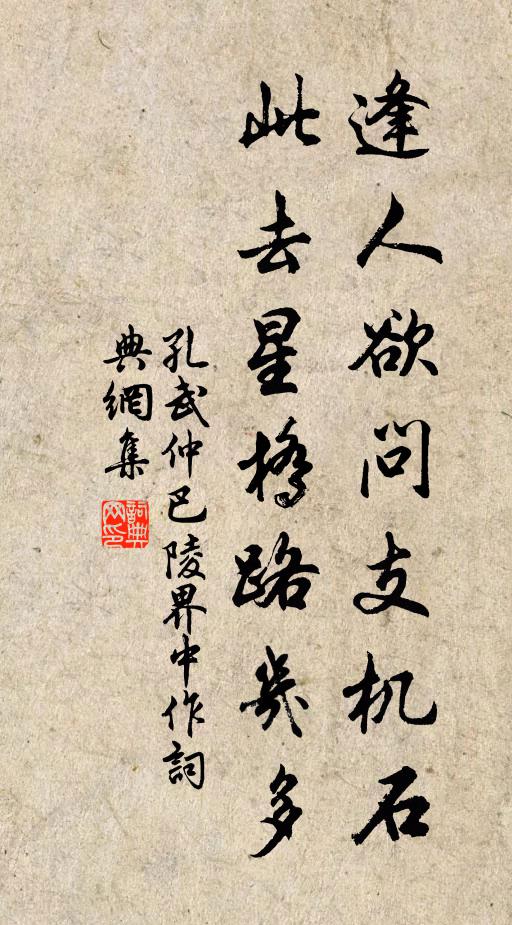 逢人欲问支机石
此去星橋路幾多
孔武仲巴陵界中作詞
典網集
詞典
网印